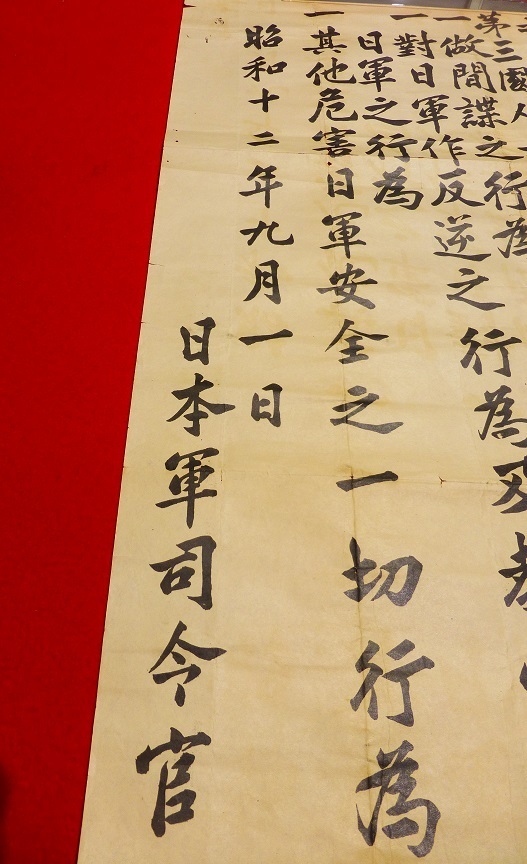 第三國人
一做間諜之行為
一對日軍作反逆之行為及
日軍之行為
一其他危害日軍安全之一切行為
昭和十二年九月一日
日本軍司令官